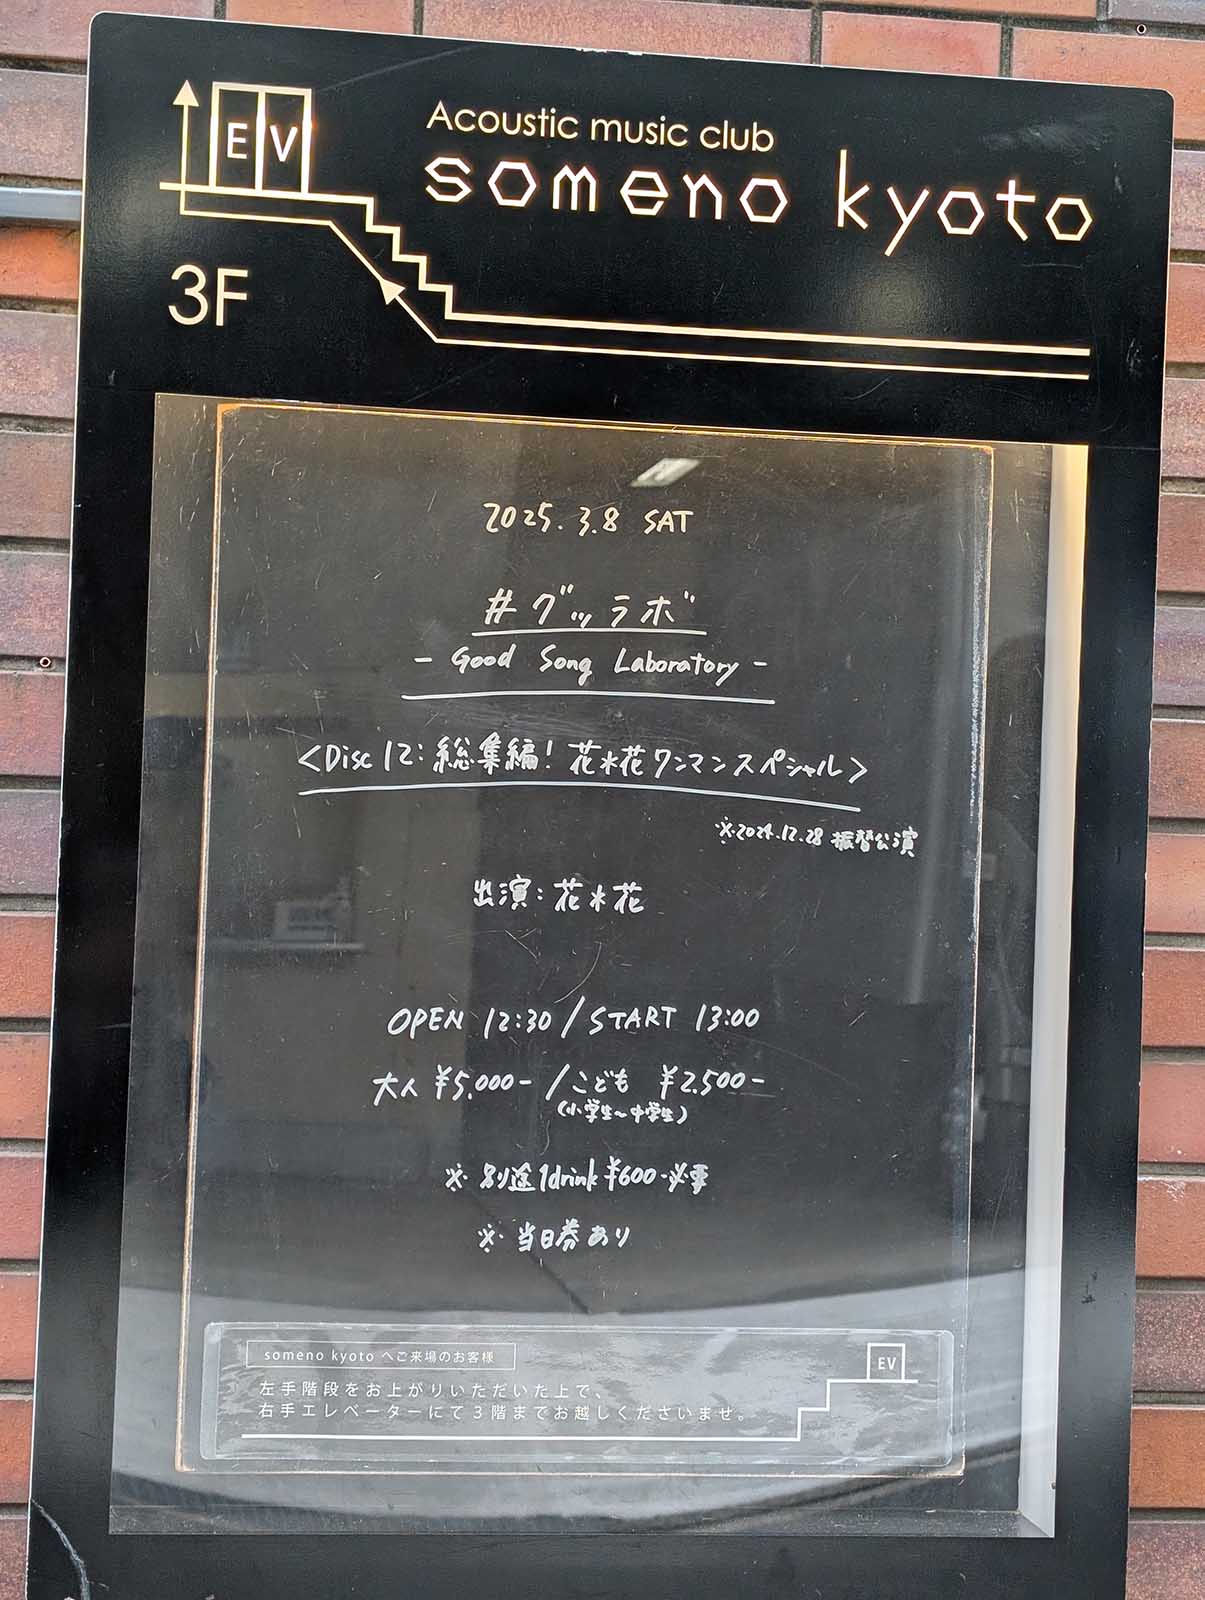 EV
Acoustic music club
someno kyoto
3F
2025.3.8 SAT
#グッラボ
- Good Song Laboratory -
<Disc 12:総集編!花*花ワンマンスペシャル>
※2024.12.28 振替公演
出演:花*花
OPEN 12:30 / START 13:00
大人 ¥5,000- / こども ¥2,500-
(小学生~中学生)
※ 別途1drink ¥600-必要
※ 当日券あり
someno kyoto へご来場のお客様
EV
左手階段をお上がりいただいた上で、
右手エレベーターにて3階までお越しくださいませ。